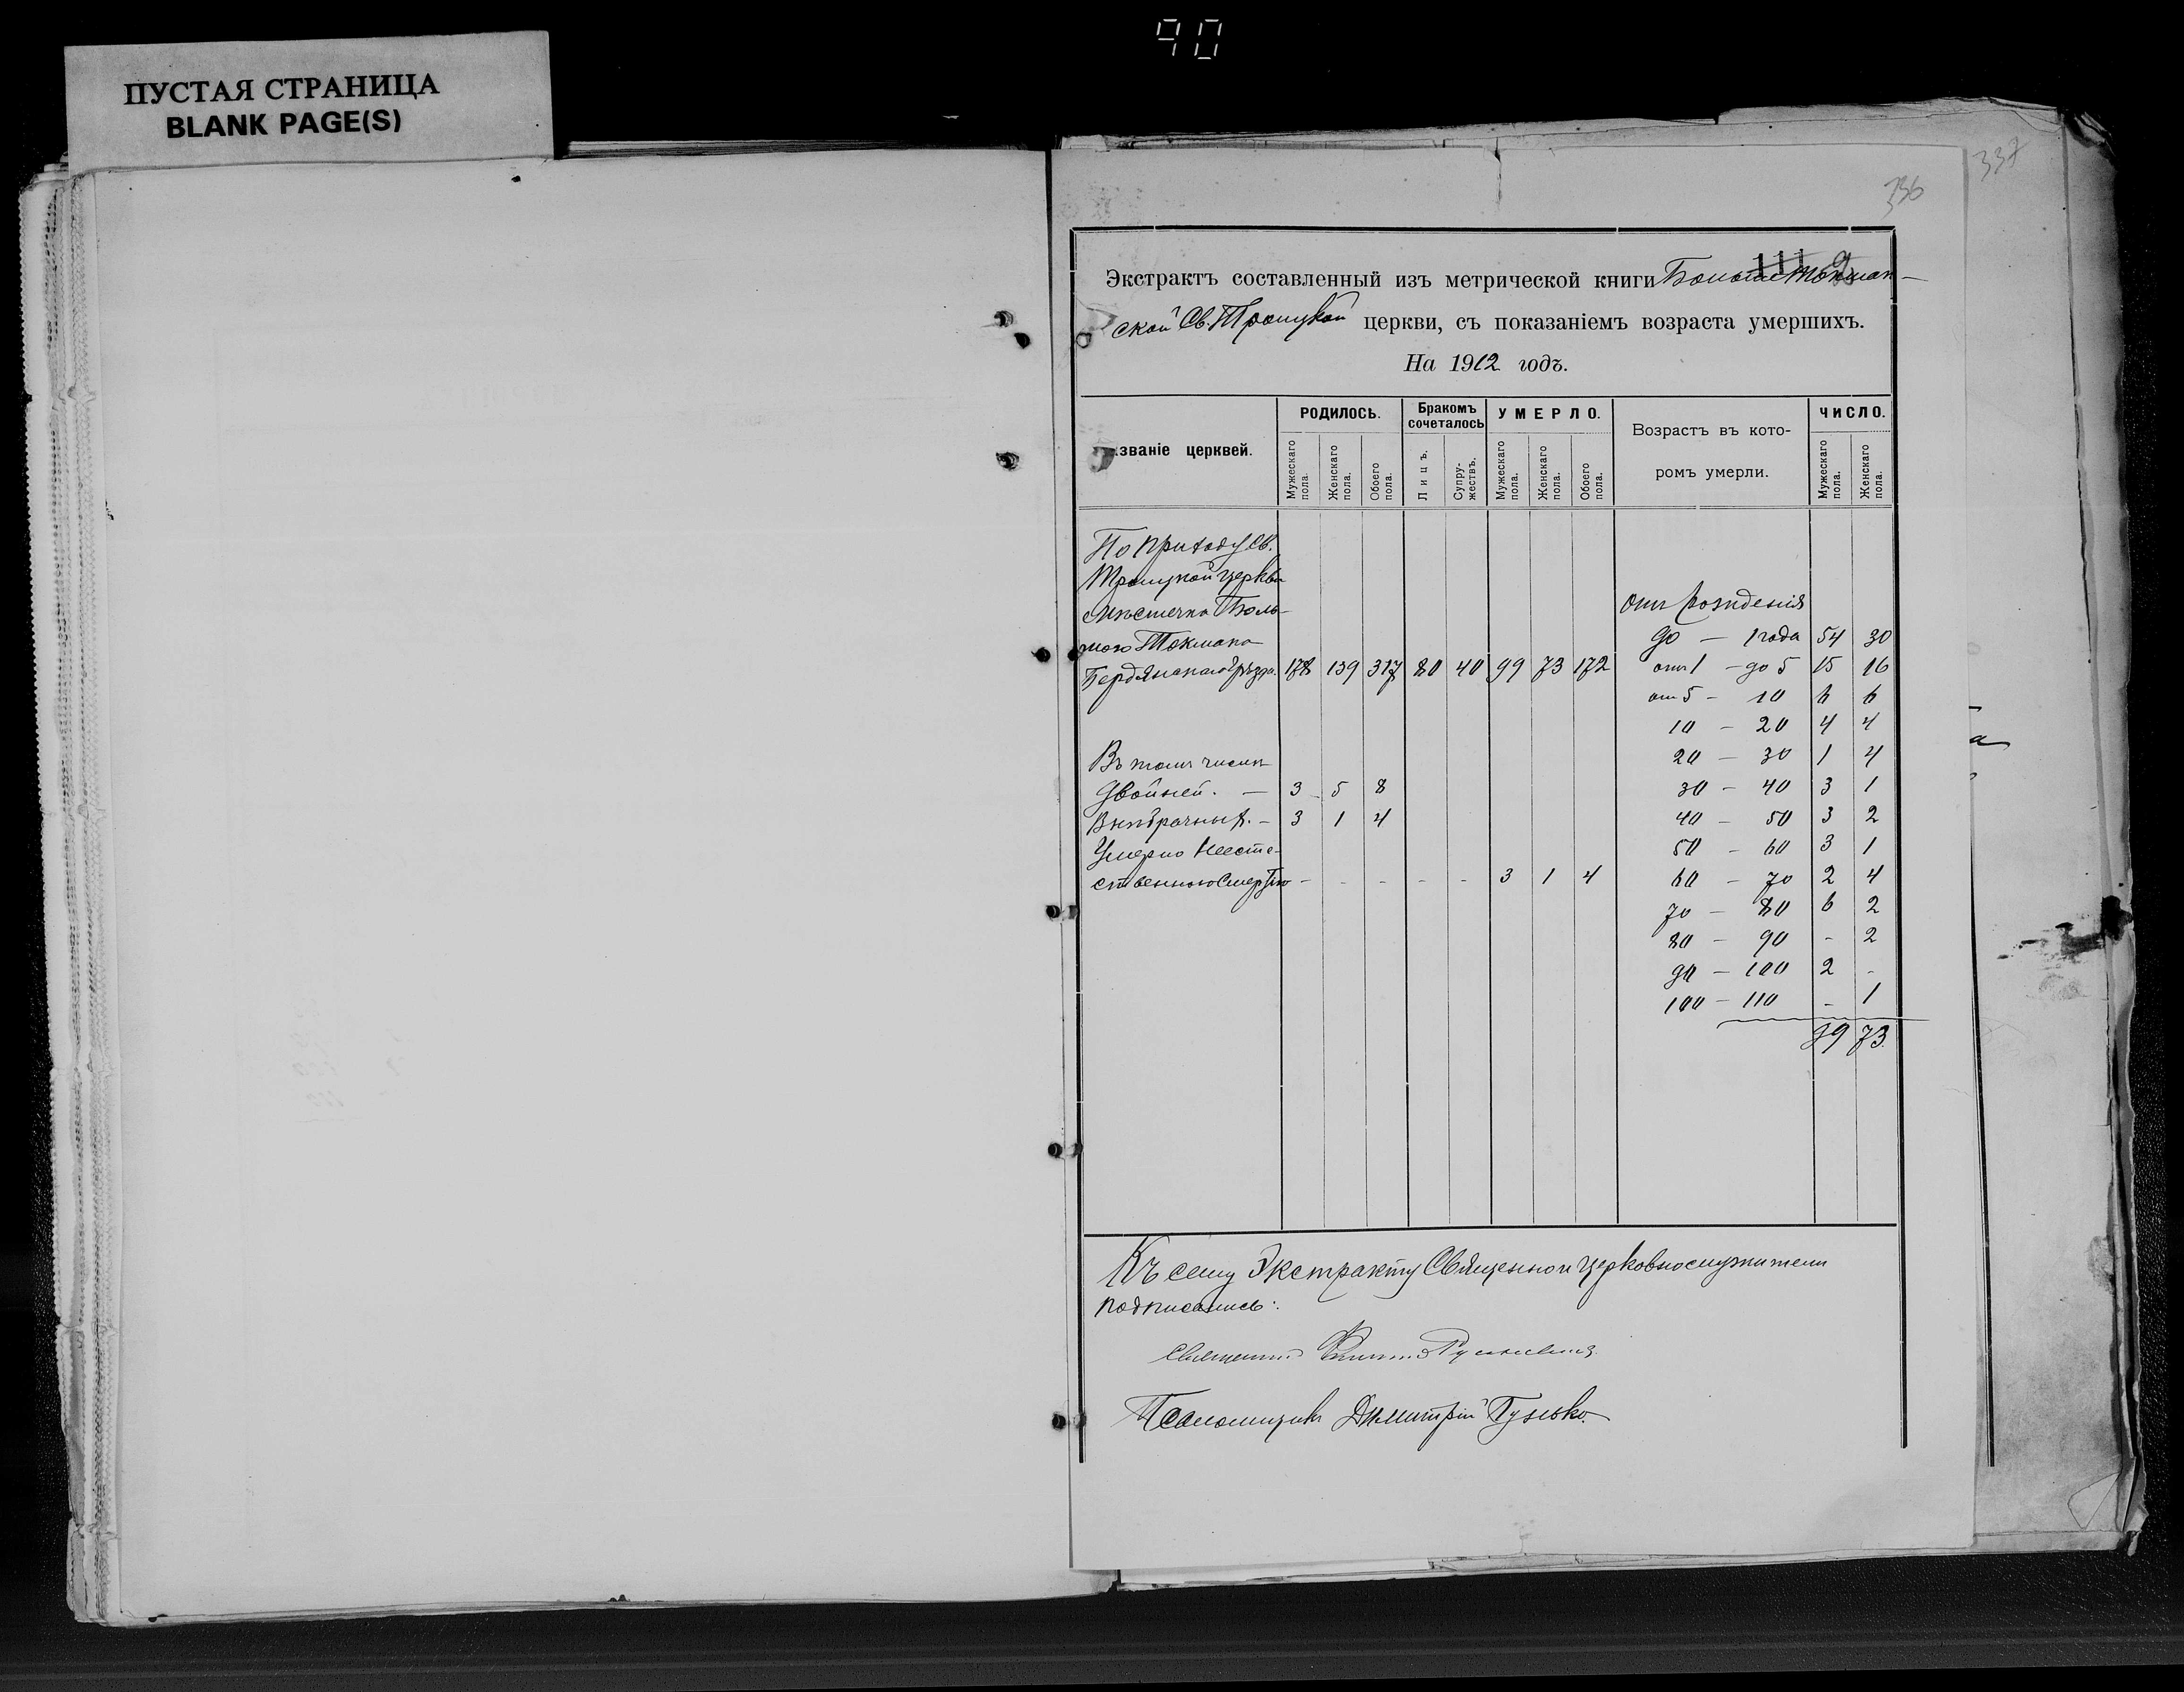 90
ПУСТАЯ СТРАНИЦА
BLANK PAGE(S)
337
336
Экстрактъ составленный изъ метрической книги Больше-Токмак-
ской Св. Троицкой церкви, съ показаніемъ возраста умершихъ.
На 1912 годъ.
званіе церквей.
РОДИЛОСЬ.
Бракомъ сочеталось
УМЕРЛО.
Возрастъ въ кото-
ромъ умерли.
ЧИСЛО.
Мужескаго пола. Женскаго пола. Обоего пола. Лицъ. Супру-жествъ. Мужескаго пола. Женскаго пола. Обоего пола. Мужескаго пола. Женскаго пола.
По приходу Св.
Троицкой церкви
Мѣстечка Боль-
шого Токмака
Бердянскаго уѣзда. 178 139 317 80 40 99 73 172
Въ томъ числѣ
Двойней. — 3 5 8
Внѣбрачныхъ. — 3 1 4
Умерло Неесте-
ственною Смертью - - - - - 3 1 4
Отъ рожденія
до — 1 года 54 30
отъ 1 — до 5 15 16
от 5 — 10 6 6
10 — 20 4 4
20 — 30 1 4
30 — 40 3 1
40 — 50 3 2
50 — 60 3 1
60 — 70 2 4
70 — 80 6 2
80 — 90 - 2
90 — 100 2 -
100 — 110 - 1
99 73.
Къ сему Экстракту Священно и церковнослужители
подписались:
Священникъ
Псаломщикъ Димитрій Гунько.